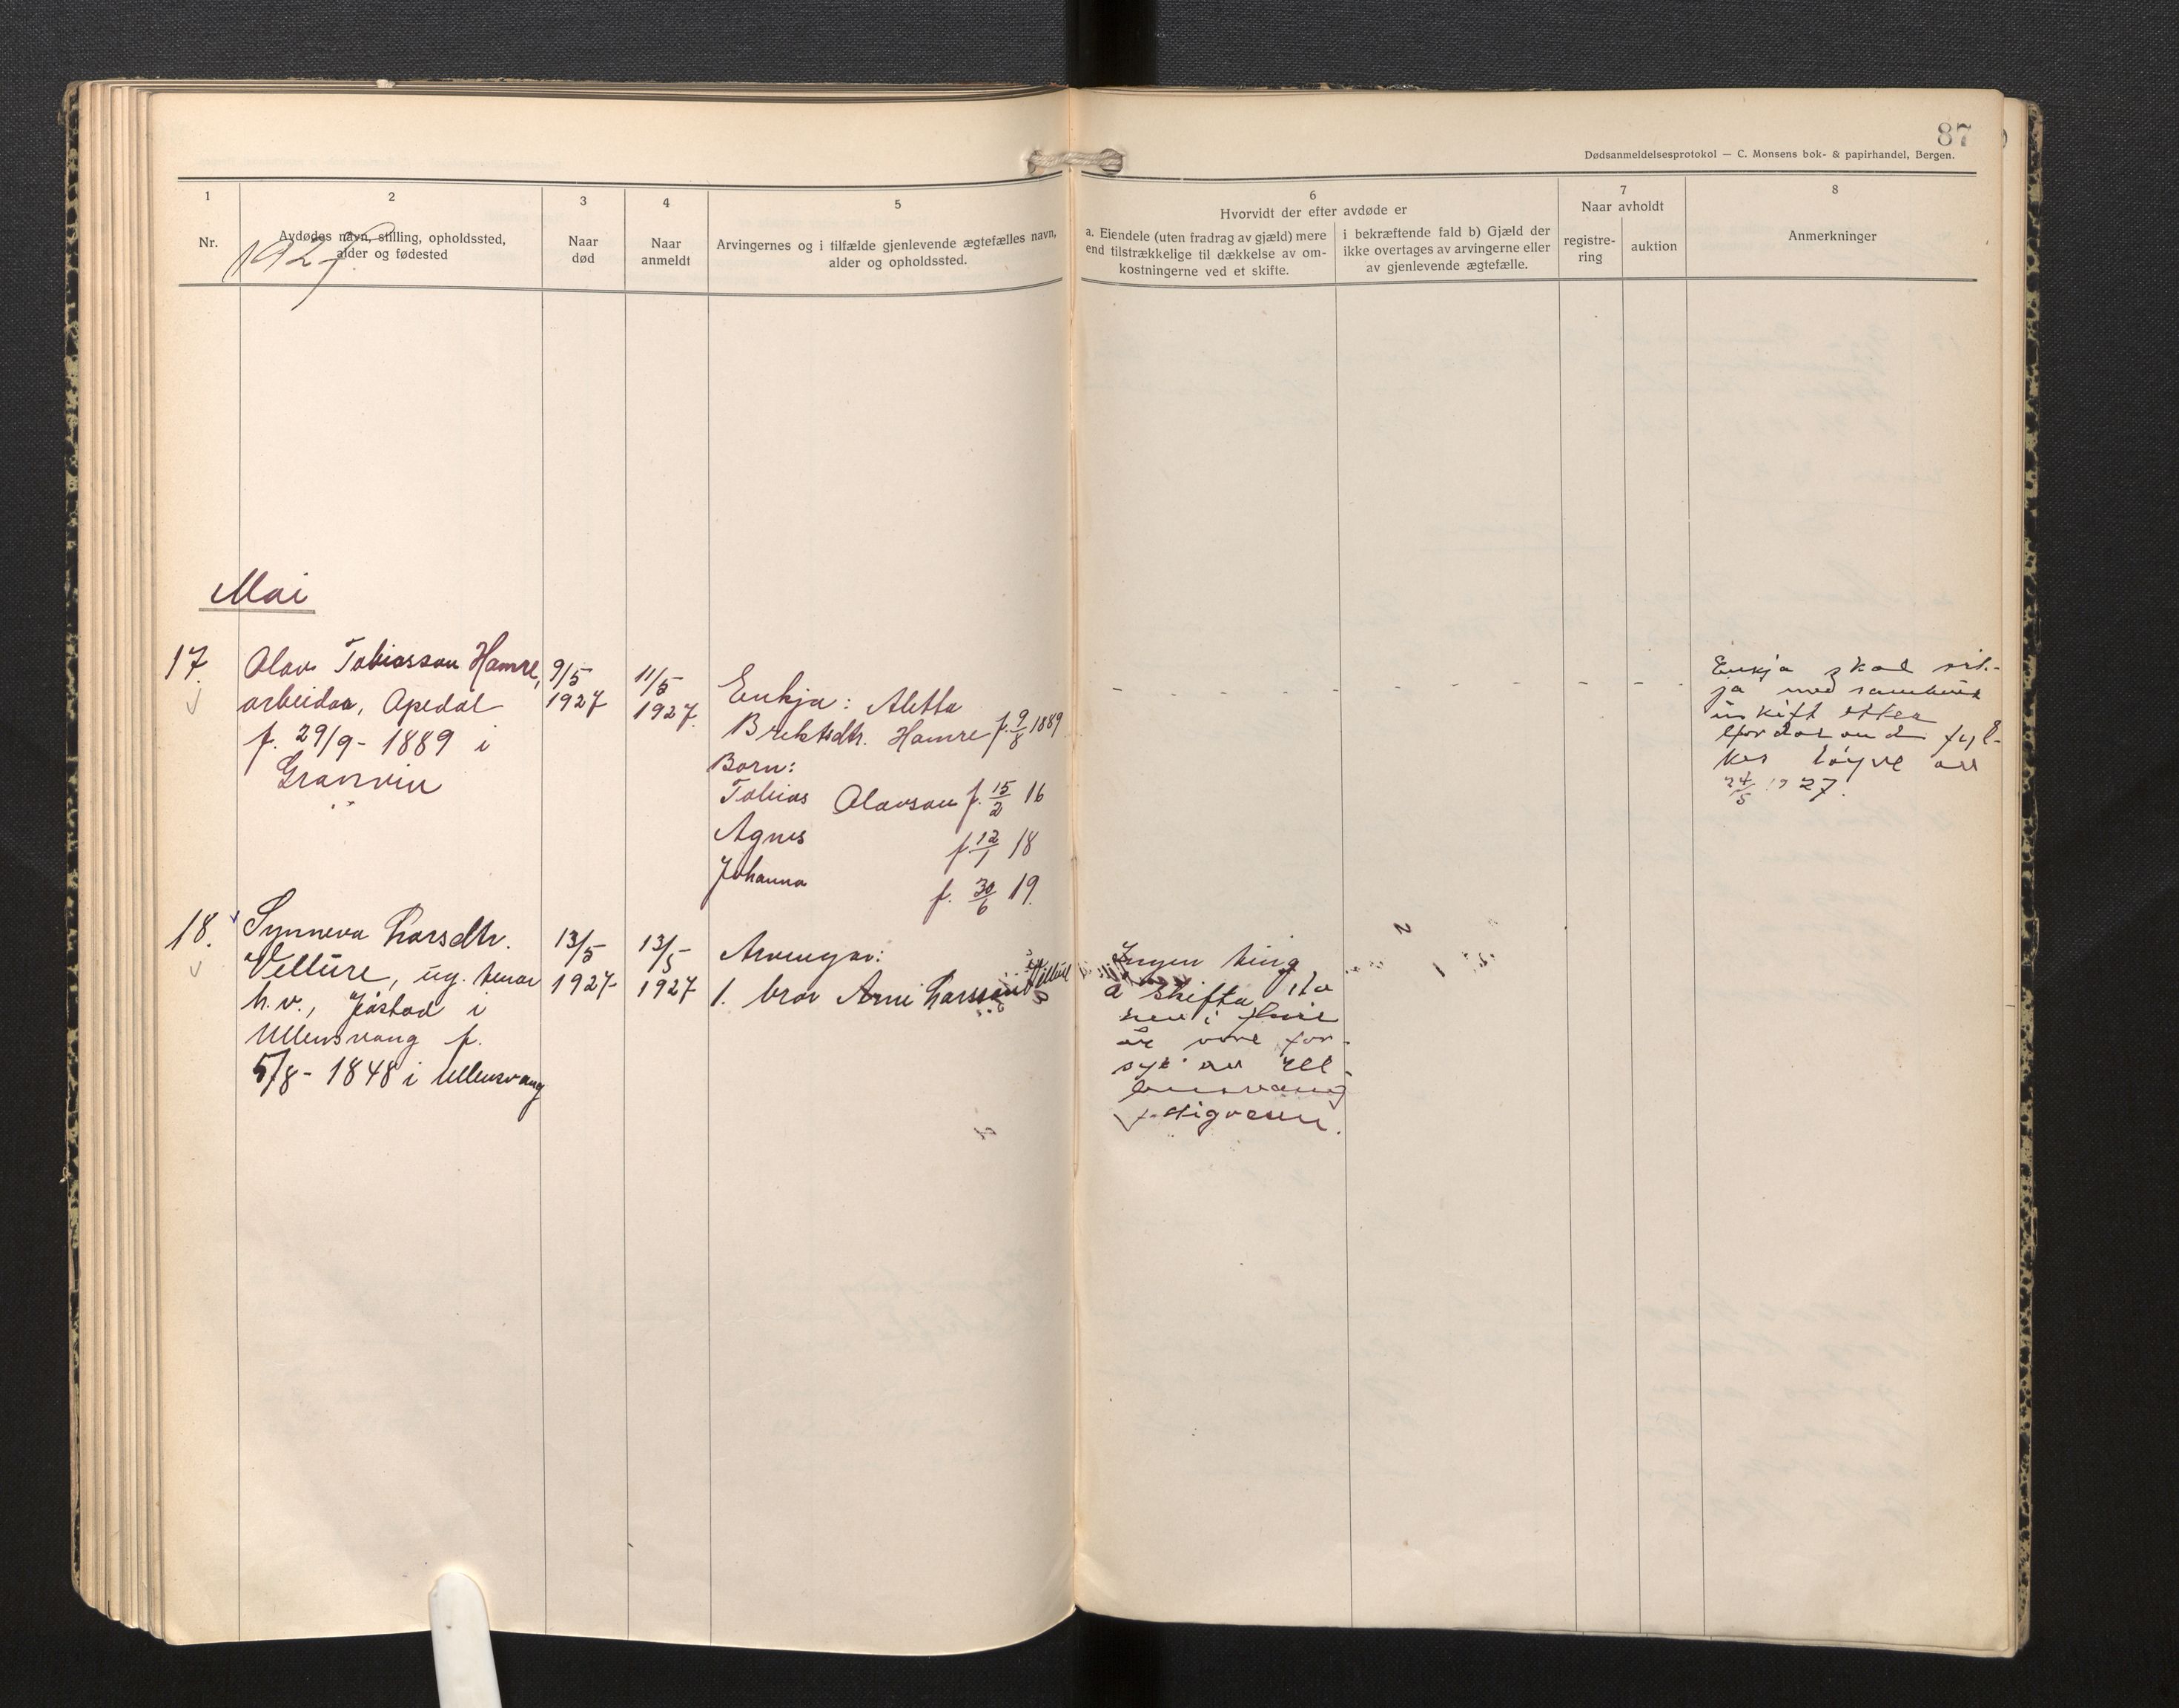 87
Dødsanmeldelsesprotokol — C. Monsens bok- & papirhandel, Bergen.
1
2
3
4
5
6
7
8
Nr.
Avdødes navn, stilling, opholdssted,
alder og fødested
1927
Naar
død
Naar
anmeldt
Arvingernes og i tilfælde gjenlevende ægtefælles navn,
alder og opholdssted.
Hvorvidt der efter avdøde er
a. Eiendele (uten fradrag av gjæld) mere
end tilstrækkelige til dækkelse av om-
kostningerne ved et skifte.
i bekræftende fald b) Gjæld der
ikke overtages av arvingerne eller
av gjenlevende ægtefælle.
Naar avholdt
registre-
ring
auktion
Anmerkninger
Mai
17.
Olav Tobiasson Hamre,
arbeidar, Apedal
f. 29/9 - 1889 i
Granvin
9/5
1927
11/5
1927.
Enkja: Aletta
Brektsdtr. Hamre f. 9/8 1889
Born:
Tobias Olavson f. 15/2 16
Agnes f. 12/1 18
Johanna f. 30/6 19.
- - - - - - - - - -
Enkja skal sit-
ja med sambuet
uskift etter
fyl-
kes löyve av
24/5 1927.
18.
Synneva Larsdtr.
Velture, ug. tenar
h. v., Jåstad i
Ullensvang f.
5/8 - 1848 i Ullensvang
13/5
1927
13/5
1927
Arvingar:
1. bror Arne Larsson Velture
Ingen ting
å skifta, då
i fleire
år vore for-
syt av Ull-
ensvang
fattigvesen.